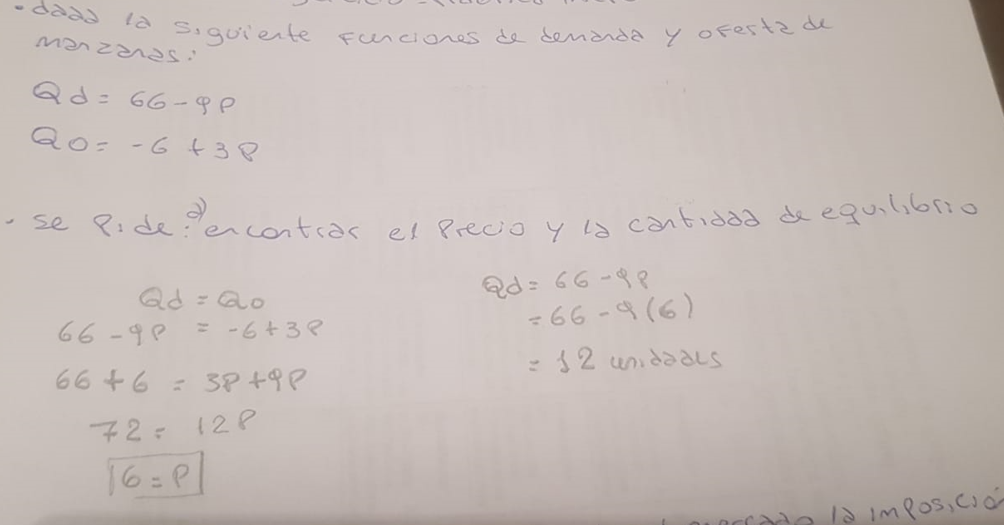 • dada la siguiente funciones de demanda y oferta de
manzanas:
Qd = 66 - 9P
Qo = -6 + 3P
• se pide: a) encontrar el precio y la cantidad de equilibrio
Qd = Qo
66 - 9P = -6 + 3P
66 + 6 = 3P + 9P
72 = 12P
6 = P
Qd = 66 - 9P
= 66 - 9(6)
= 12 unidades
la imposició